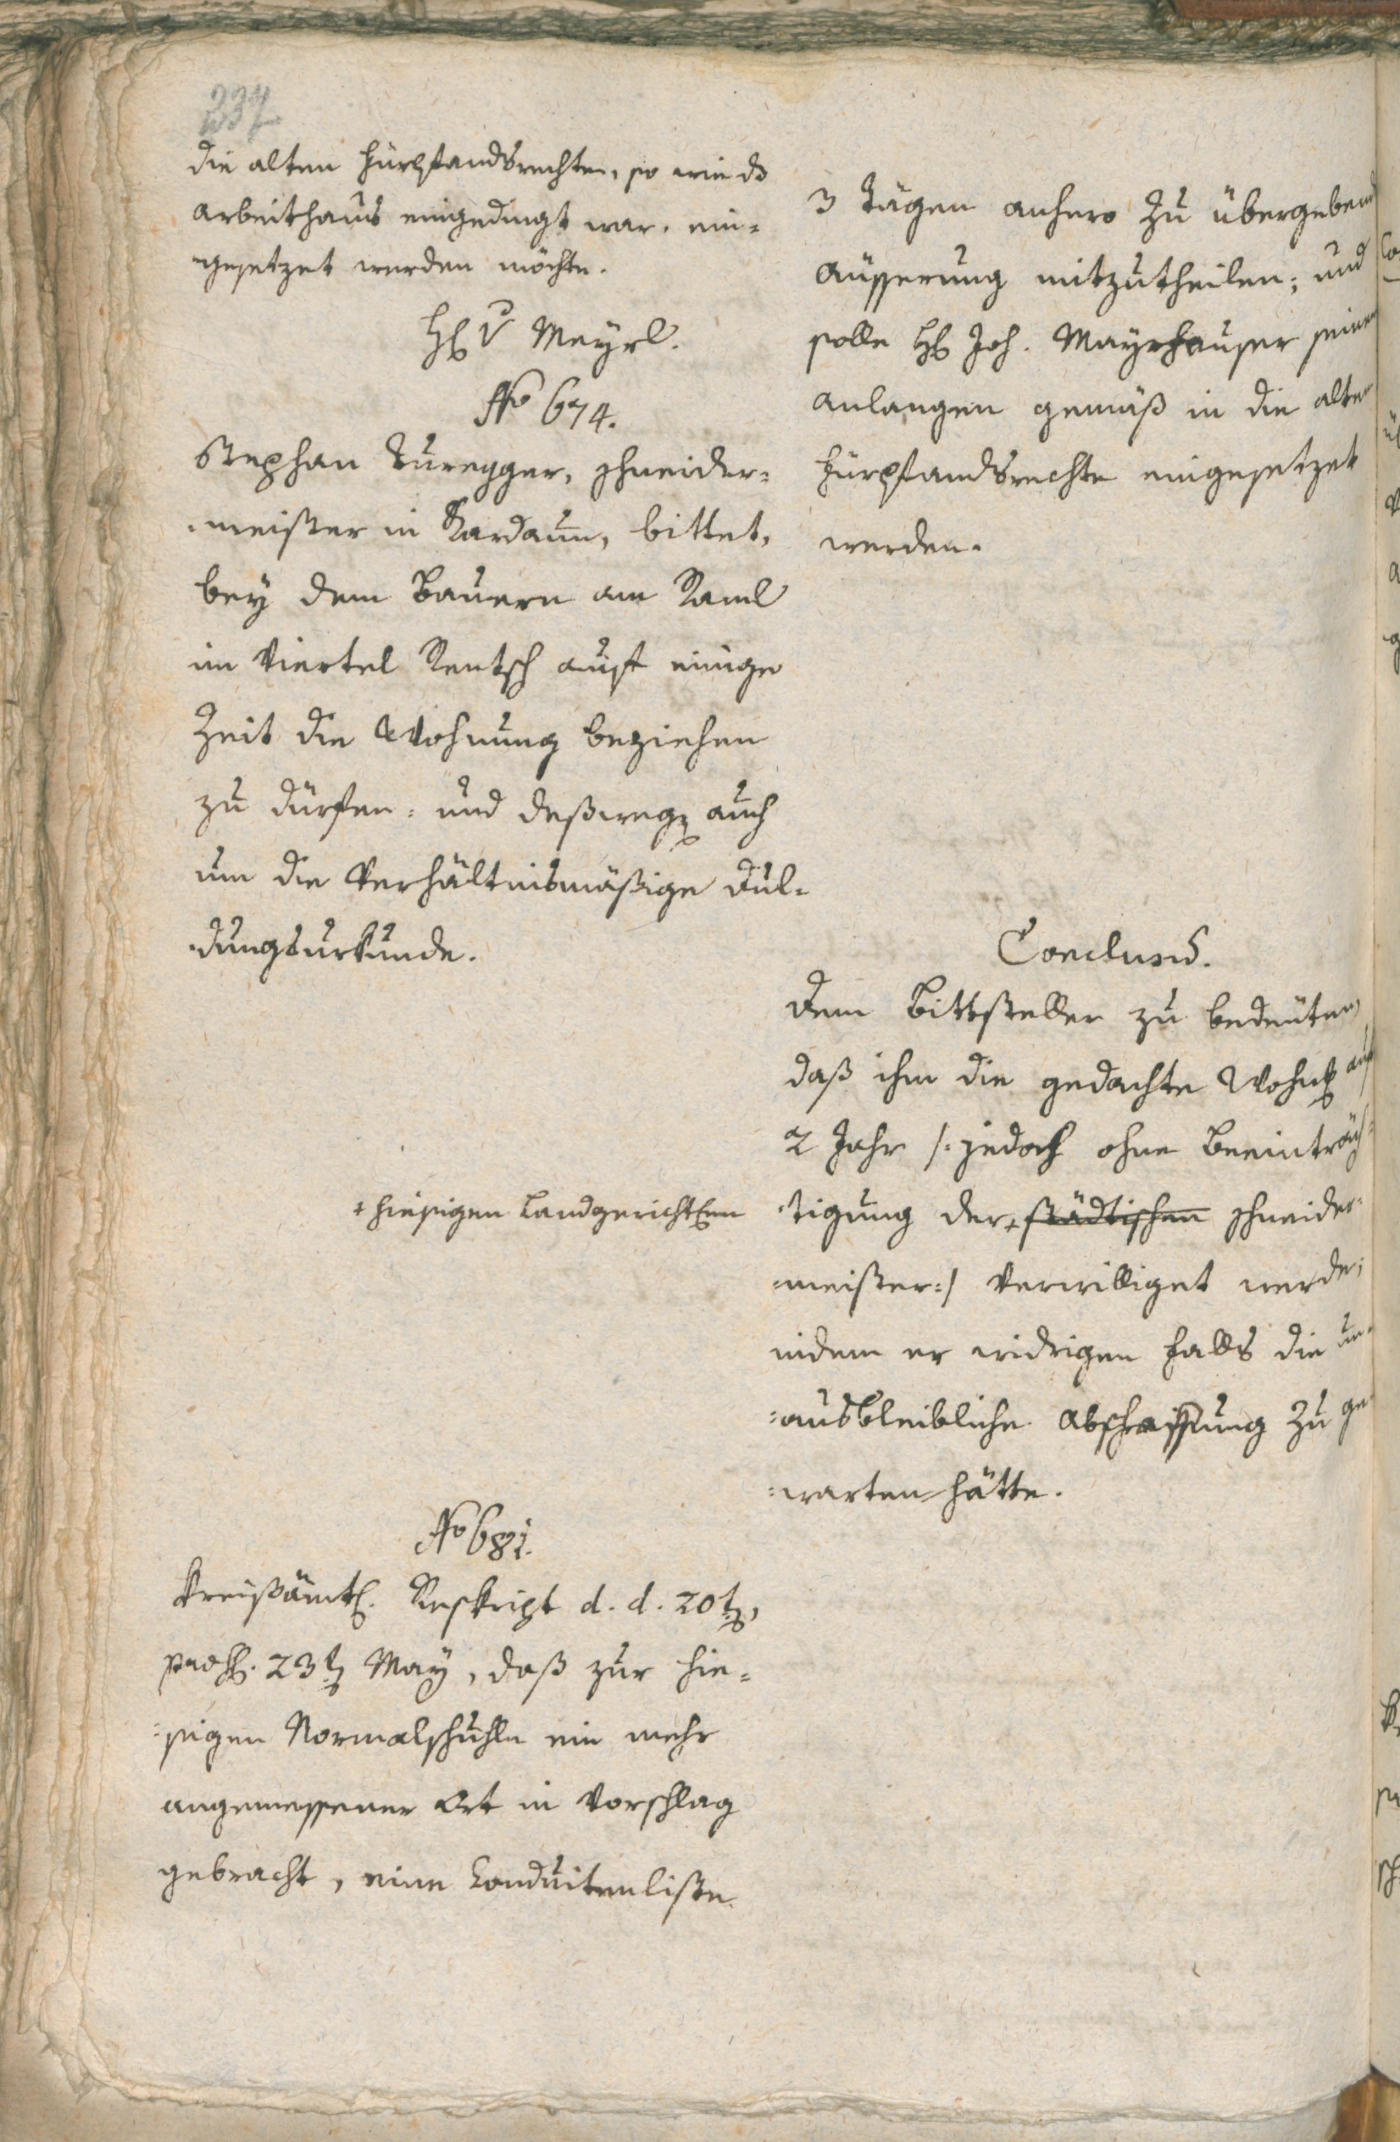 237
die alten Fürstandsrechten, so wie ds
Arbeithaus eingedingt war, ein=
gesetzet werden möchte.
H. v Mayrl.
No 674.
Stephan Turegger, Schneider=
=meister in Kardaun, bittet,
bey dem Bauern am Raml
im Viertel Rentsch auf einige
Zeit die Wohnung beziehen
zu dürfen: und deßweg auch
um die Verhältnismäßige Dul=
=dungsurkunde.
No 681.
Kreißämtl. Reskript d. d. 20t,
23t May, daß zur hie=
=sigen Normalschuhle ein mehr
angemessener Ort in Vorschlag
gebracht, eine Conduitenliste
3 Tägen anhero zu übergebend
Äusserung mitzutheilen; und
solle H. Joh. Mayrhauser seinem
anlangen gemäß in die alten
Fürstandsrechte eingesetzet
werden.
Conclus.
Dem Bittsteller zu bedeuten,
daß ihm die gedachte Wohng auf
2 Jahr /: jedoch ohne Beeinträch=
=tigung der + städtischen Schneider=
+ hiesigen Landgerichtlen
=meister :/ Verwilliget werde;
indem er widrigen Falls die un=
=ausbleibliche Abschaffung zu ge=
=warten hätte.